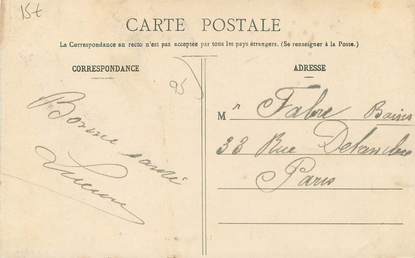 15t
CARTE POSTALE
La Correspondance au recto n'est pas acceptée par tous les pays étrangers. (Se renseigner à la Poste.)
CORRESPONDANCE
ADRESSE
95
Bonne santé
M Fabre
33 Rue
Paris